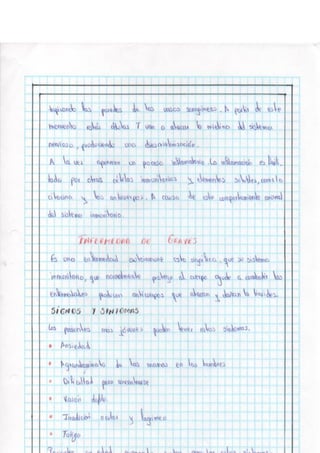 las paredes de los vasos sanguíneos. A partir de este
momento estas células T van o atacan la mielina del sistema
nervioso, produciendo una desmielinización.
A la vez aparece un proceso inflamatorio. La inflamación es facili
tada por otras células inmunitarias y elementos solubles, como la
citocina y los anticuerpos. A causa de este comportamiento anormal
del sistema inmunitario.
ENFERMEDAD DE GRAVES
Es una enfermedad autoinmune esto significa, que el sistema
inmunitario, que normalmente protege al cuerpo ayuda a combatir las
enfermedades producen anticuerpos que atacan y dañan la tiroides.
SIGNOS Y SINTOMAS
Los pacientes mas jóvenes pueden tener estos síntomas.
• Ansiedad
• Agrandamiento de las mamas en los hombres
• Dificultad para concentrarse
• Visión doble
• Irritación ocular y lagrimeo
• Fatiga